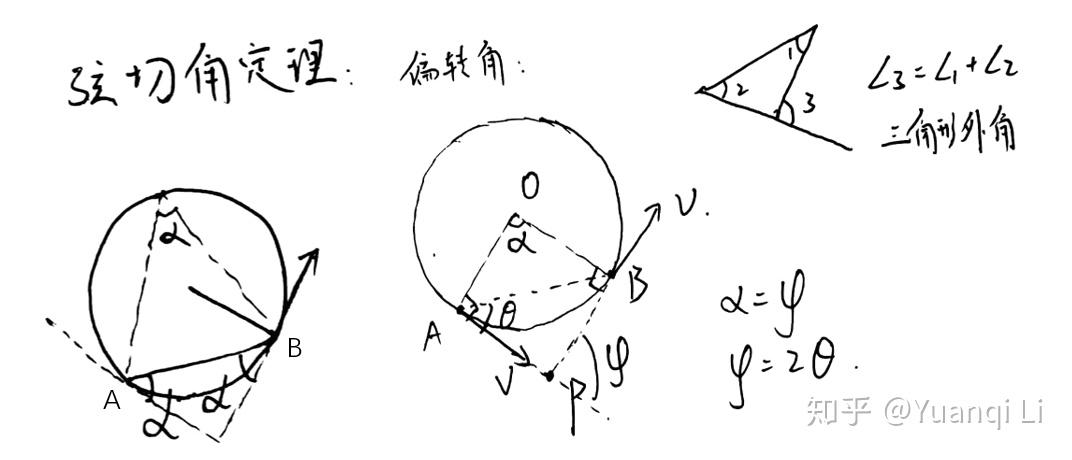 弦切角定理：
偏转角：
1
2
3
∠3=∠1+∠2
三角形外角
α
A
B
α
α
O
α
A
θ
B
v
v.
P
φ
α=φ
φ=2θ.
知乎 @Yuanqi Li